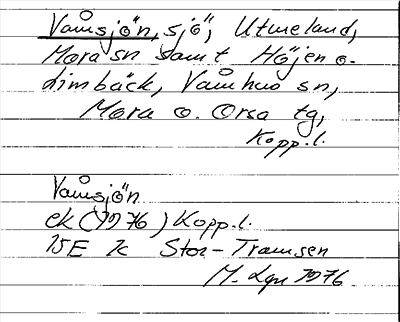 Våmsjön, sjö, Utmeland,
Mora sn samt Höjen o.
Limbäck, Våmhus sn,
Mora o. Orsa tg,
Kopp.l.
Våmsjön
ek (1976) Kopp.l.
15E 1c Stor-Tramsen
M. Lgn 1976